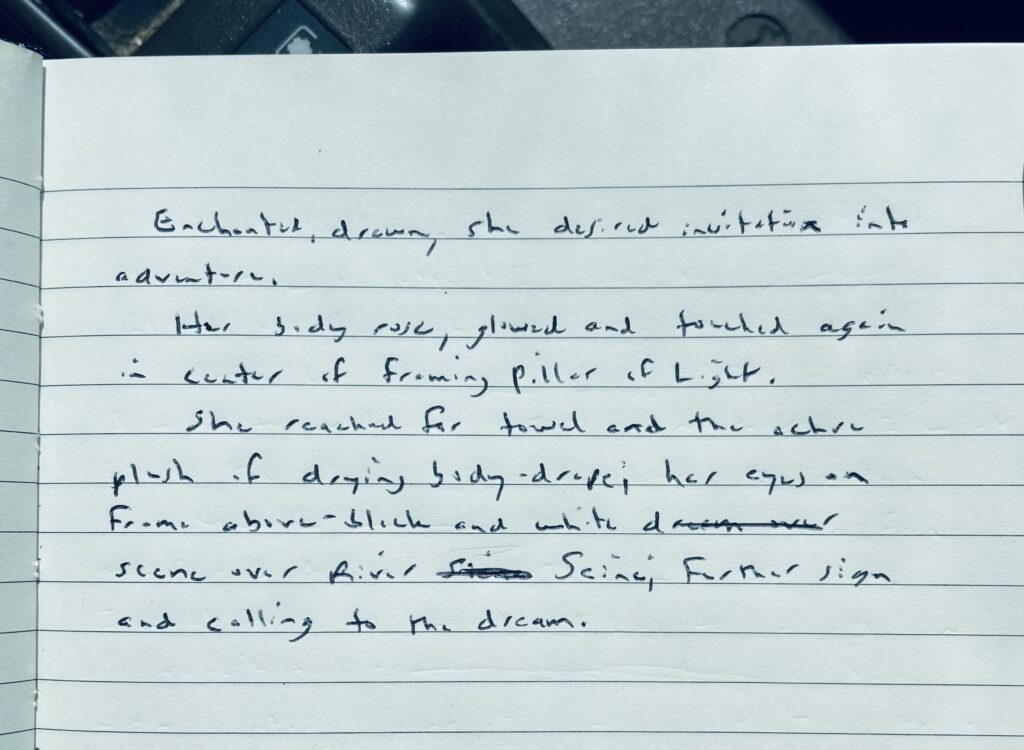 Enchanted, drawn, she desired invitation into
adventure.
Her body rose, glowed and touched again
in center of framing pillar of Light.
She reached for towel and the ochre
plush of drying body-drape; her eyes on
Frame above-black and white
scene over River Seine; Further sign
and calling to the dream.